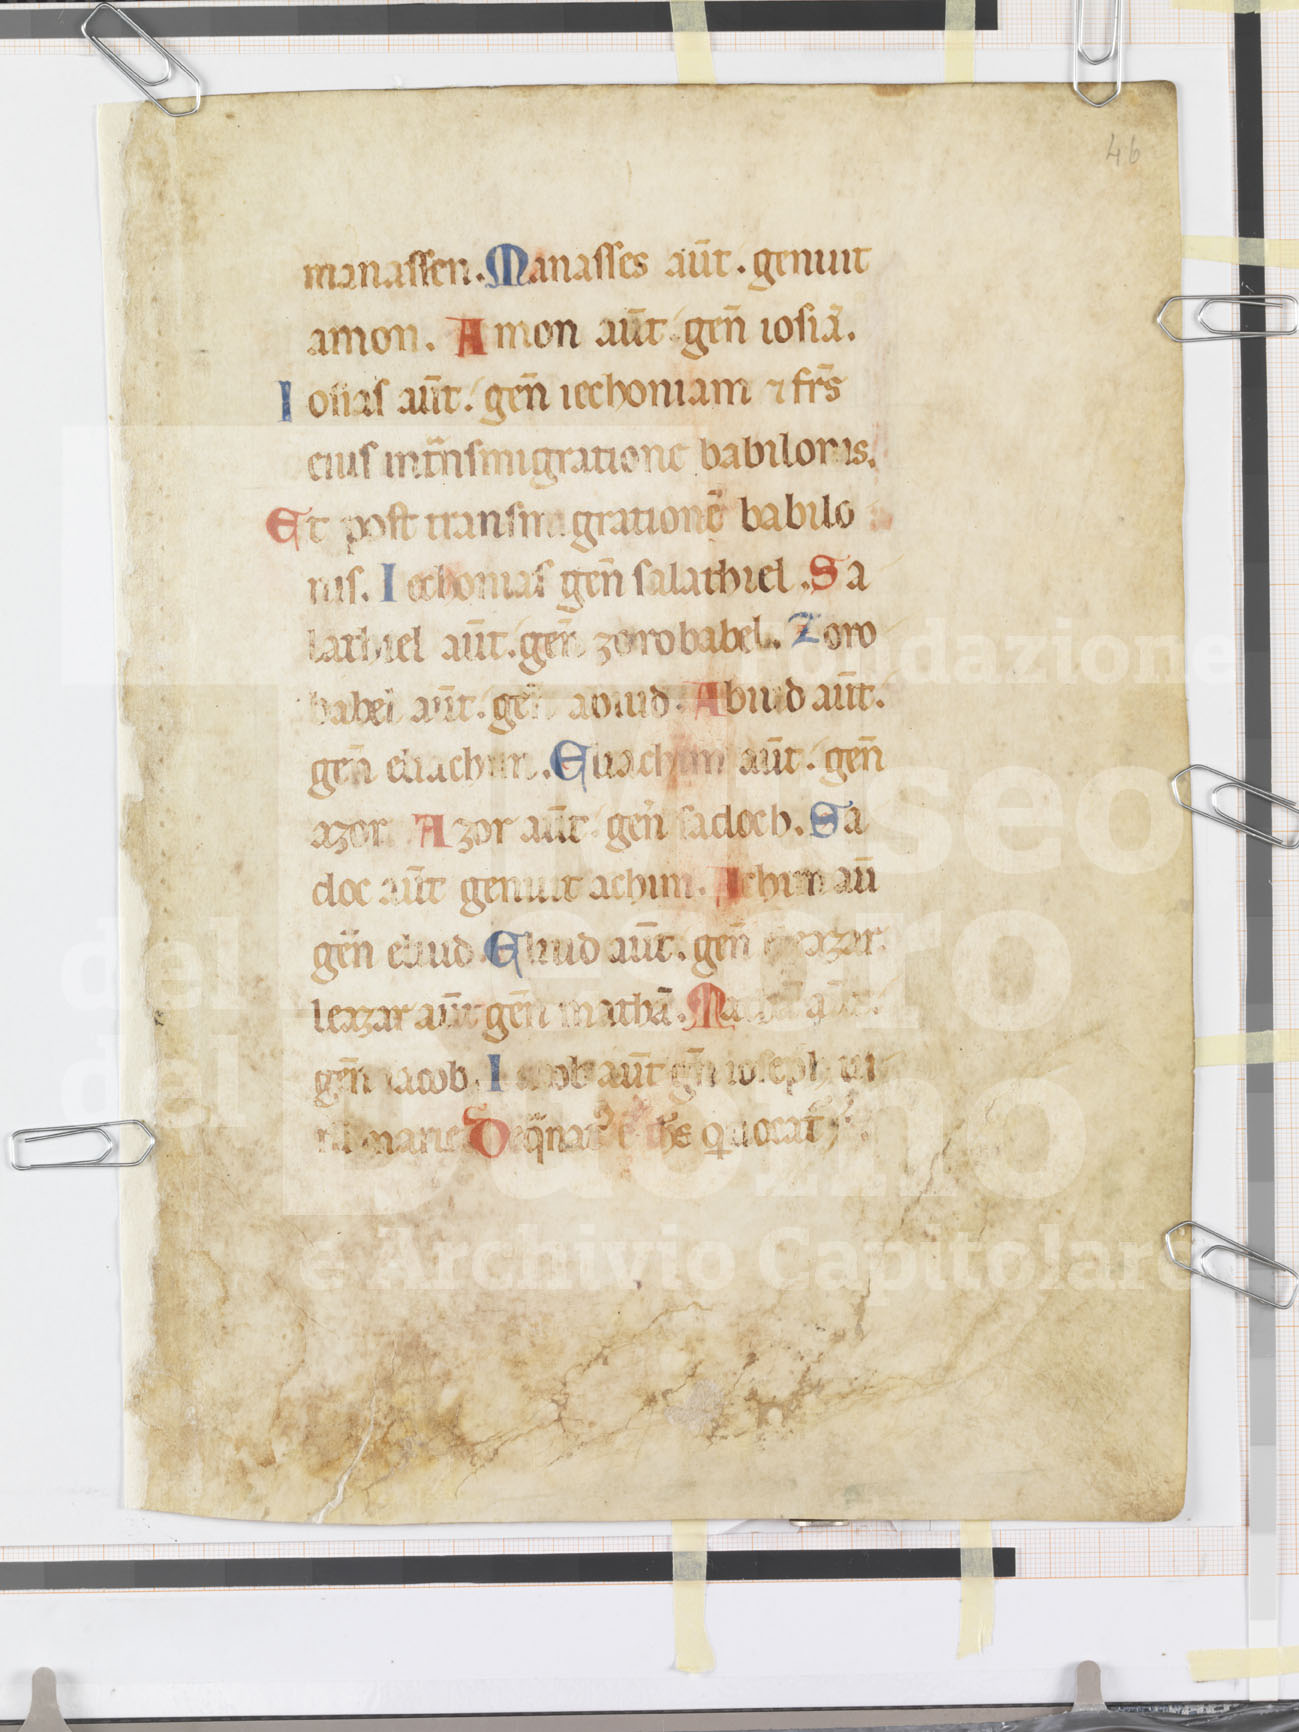 46
manassen. Manasses aūt. genuit
amon. Amon aūt. gen̄ iosiā.
Iosias aūt. gen̄ iechoniam ⁊ frs̄
eius in trn̄smigratione babilonis.
Et post transmigrationē babilo
nis. Iechonias gen̄ salathiel. Sa
lathiel aūt. gen̄ zorobabel. Zoro
babel aūt. gen̄ abiud. Abiud aūt.
gen̄ eliachim. Eliachim aūt. gen̄
azor. Azor aūt. gen̄ sadoch. Sa
doc aūt genuit achim. Achim aū
gen̄ eliud. Eliud aūt. gen̄ eleazar.
leazar aūt gen̄ mathā. Mathā aūt.
gen̄ iacob. Iacob aūt gn̄ ioseph ui
rū marie De q̄ ihc̄ uocat᷑
Fondazione
Museo
del Tesoro
del Duomo
e Archivio Capitolare